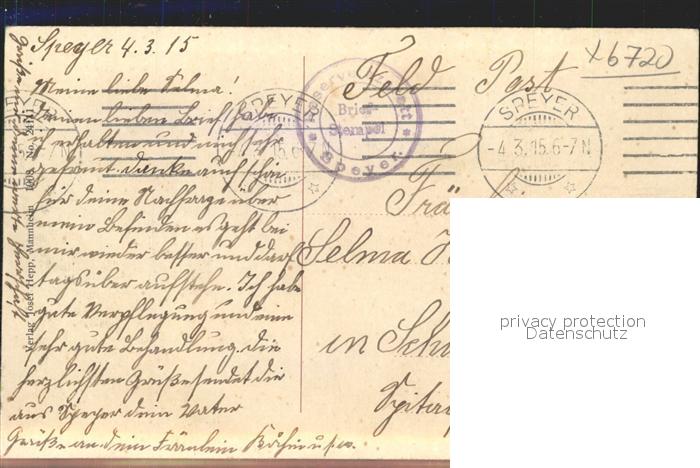 Speyer 4.3.15
Meine liebe Selma!
Deinen lieben Brief habe
ich erhalten und mich sehr
gefreut. danke auch schön
für deine Nachfrage über
mein Befinden es geht bei
mir wieder besser und darf
tagsüber aufstehn. Ich habe
gute Verpflegung und eine
sehr gute Behandlung. die
herzlichsten Grüße sendet dir
aus Speyer dein Vater
Grüße an dein Fräulein u.s.w.
Verlag Josef Hepp, Mannheim 1908. No. 24141
Feld Post
x6720
Reserve
Brief-
Stempel
Speyer.
SPEYER
SPEYER
-4.3.15.6-7N
Frä
Selma
in Sch
privacy protection
Datenschutz